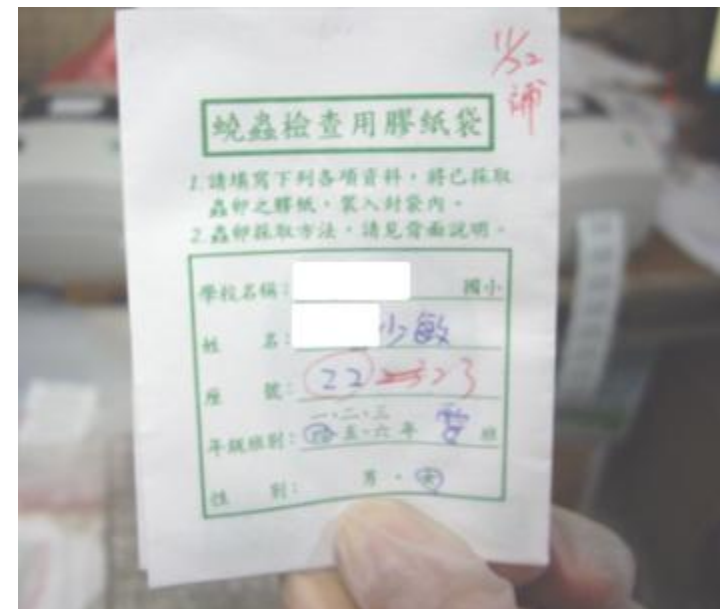 11/22
補
蟯蟲檢查用膠紙袋
1.請填寫下列各項資料,將已採取
蟲卵之膠紙,裝入封套內。
2.蟲卵採取方法,請見背面說明。
學校名稱: 國小
姓 名: 少敏
座 號: 22
一、二、三
年級班別: 四 五、六 年 班
性 別: 男、女